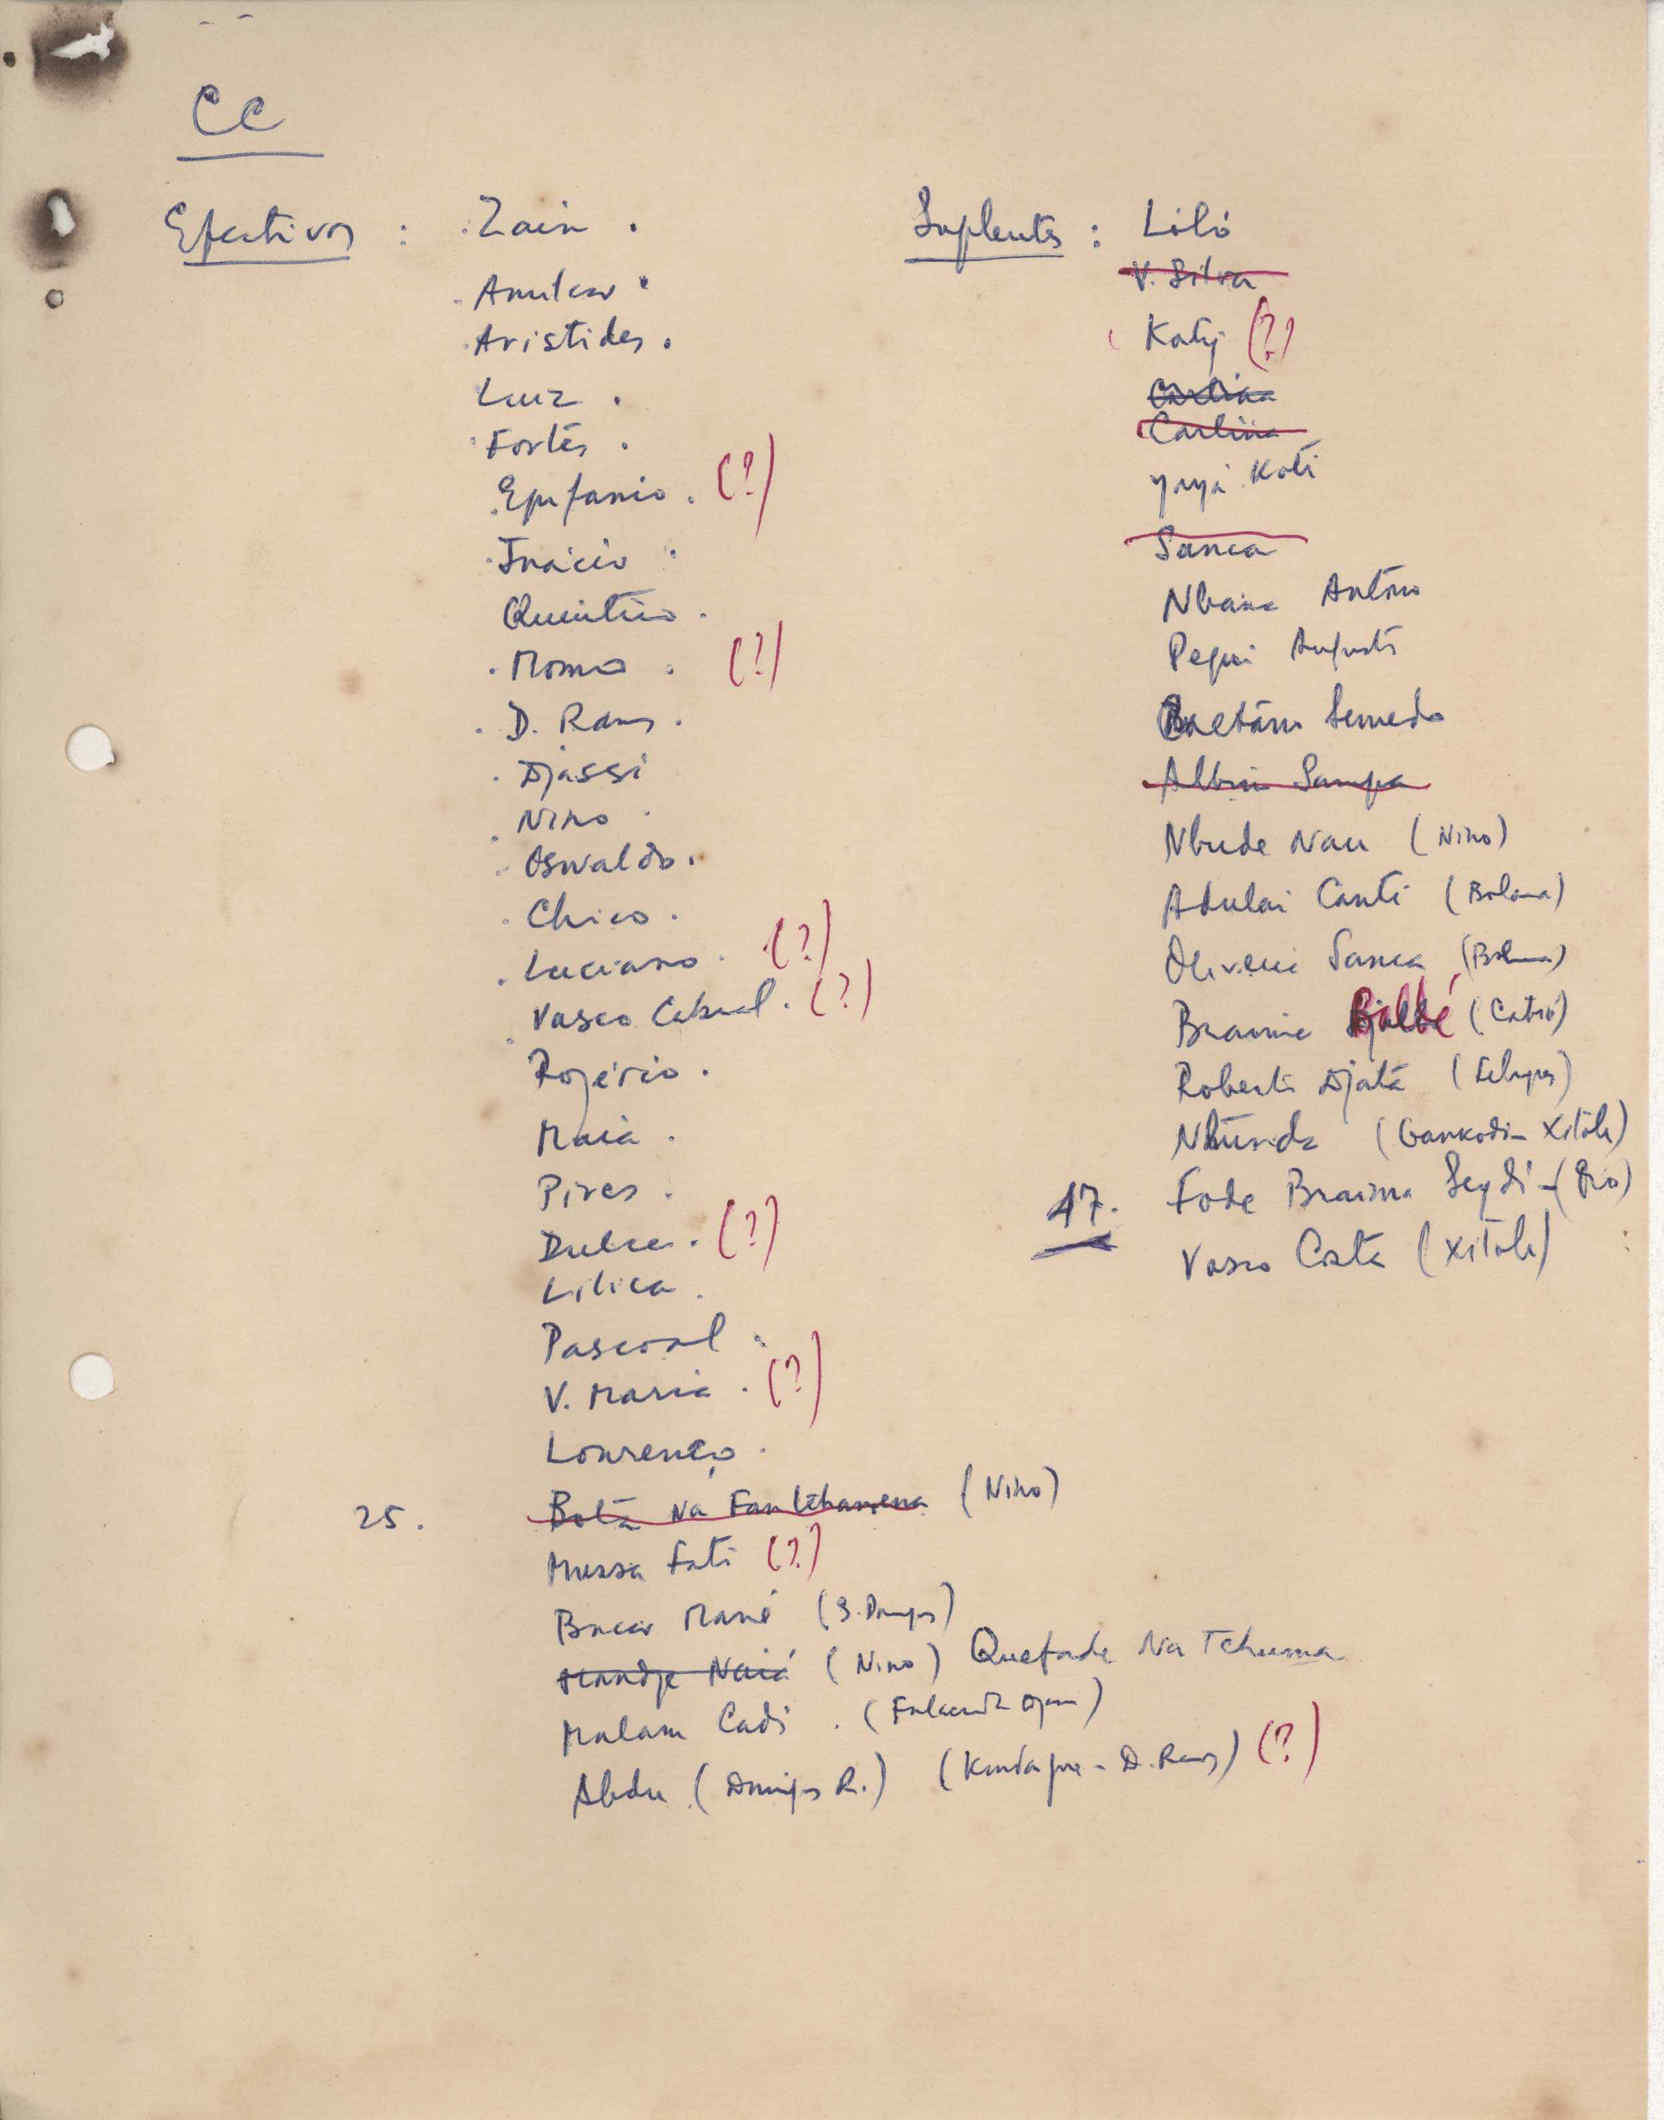 CC
Efectivos : Zain .
Amilcar .
Aristides .
Luiz .
Fortes .
Epifanio . (?)
Inácio .
Quintino .
Momo . (?)
D. Ramos .
Djassi
Nino .
Osvaldo .
Chico .
Luciano . (?)
Vasco Cabral . (?)
Rogério .
Maia .
Pires .
Dulce . (?)
Lilica .
Pascoal .
V. Maria . (?)
Lourenço .
25. Botã Na Fantchamena (Nino)
Mussa Fati (?)
Bucar Mané (S. Domingos)
Naiá (Nino) Quefade Na Tchuma
Malam Cadi .
Abdu (Domingos R.) (D. Ramos) (?)
Suplentes : Liló
V. Silva
Katy (?)
Carlina
Yaya Koté
Sanca
Nbana António
Pequi Augusto
Caetano Semedo
Albino Sampa
Nbude Nau (Nino)
Adulai Canté (Bolama)
Oliveira Sanca (Bolama)
Braima Bjalbé (Catió)
Roberto Djatá
Nbunda (Xitole)
17. Fode Braima Seydi - (Oio)
Vasco Costa (Xitole)